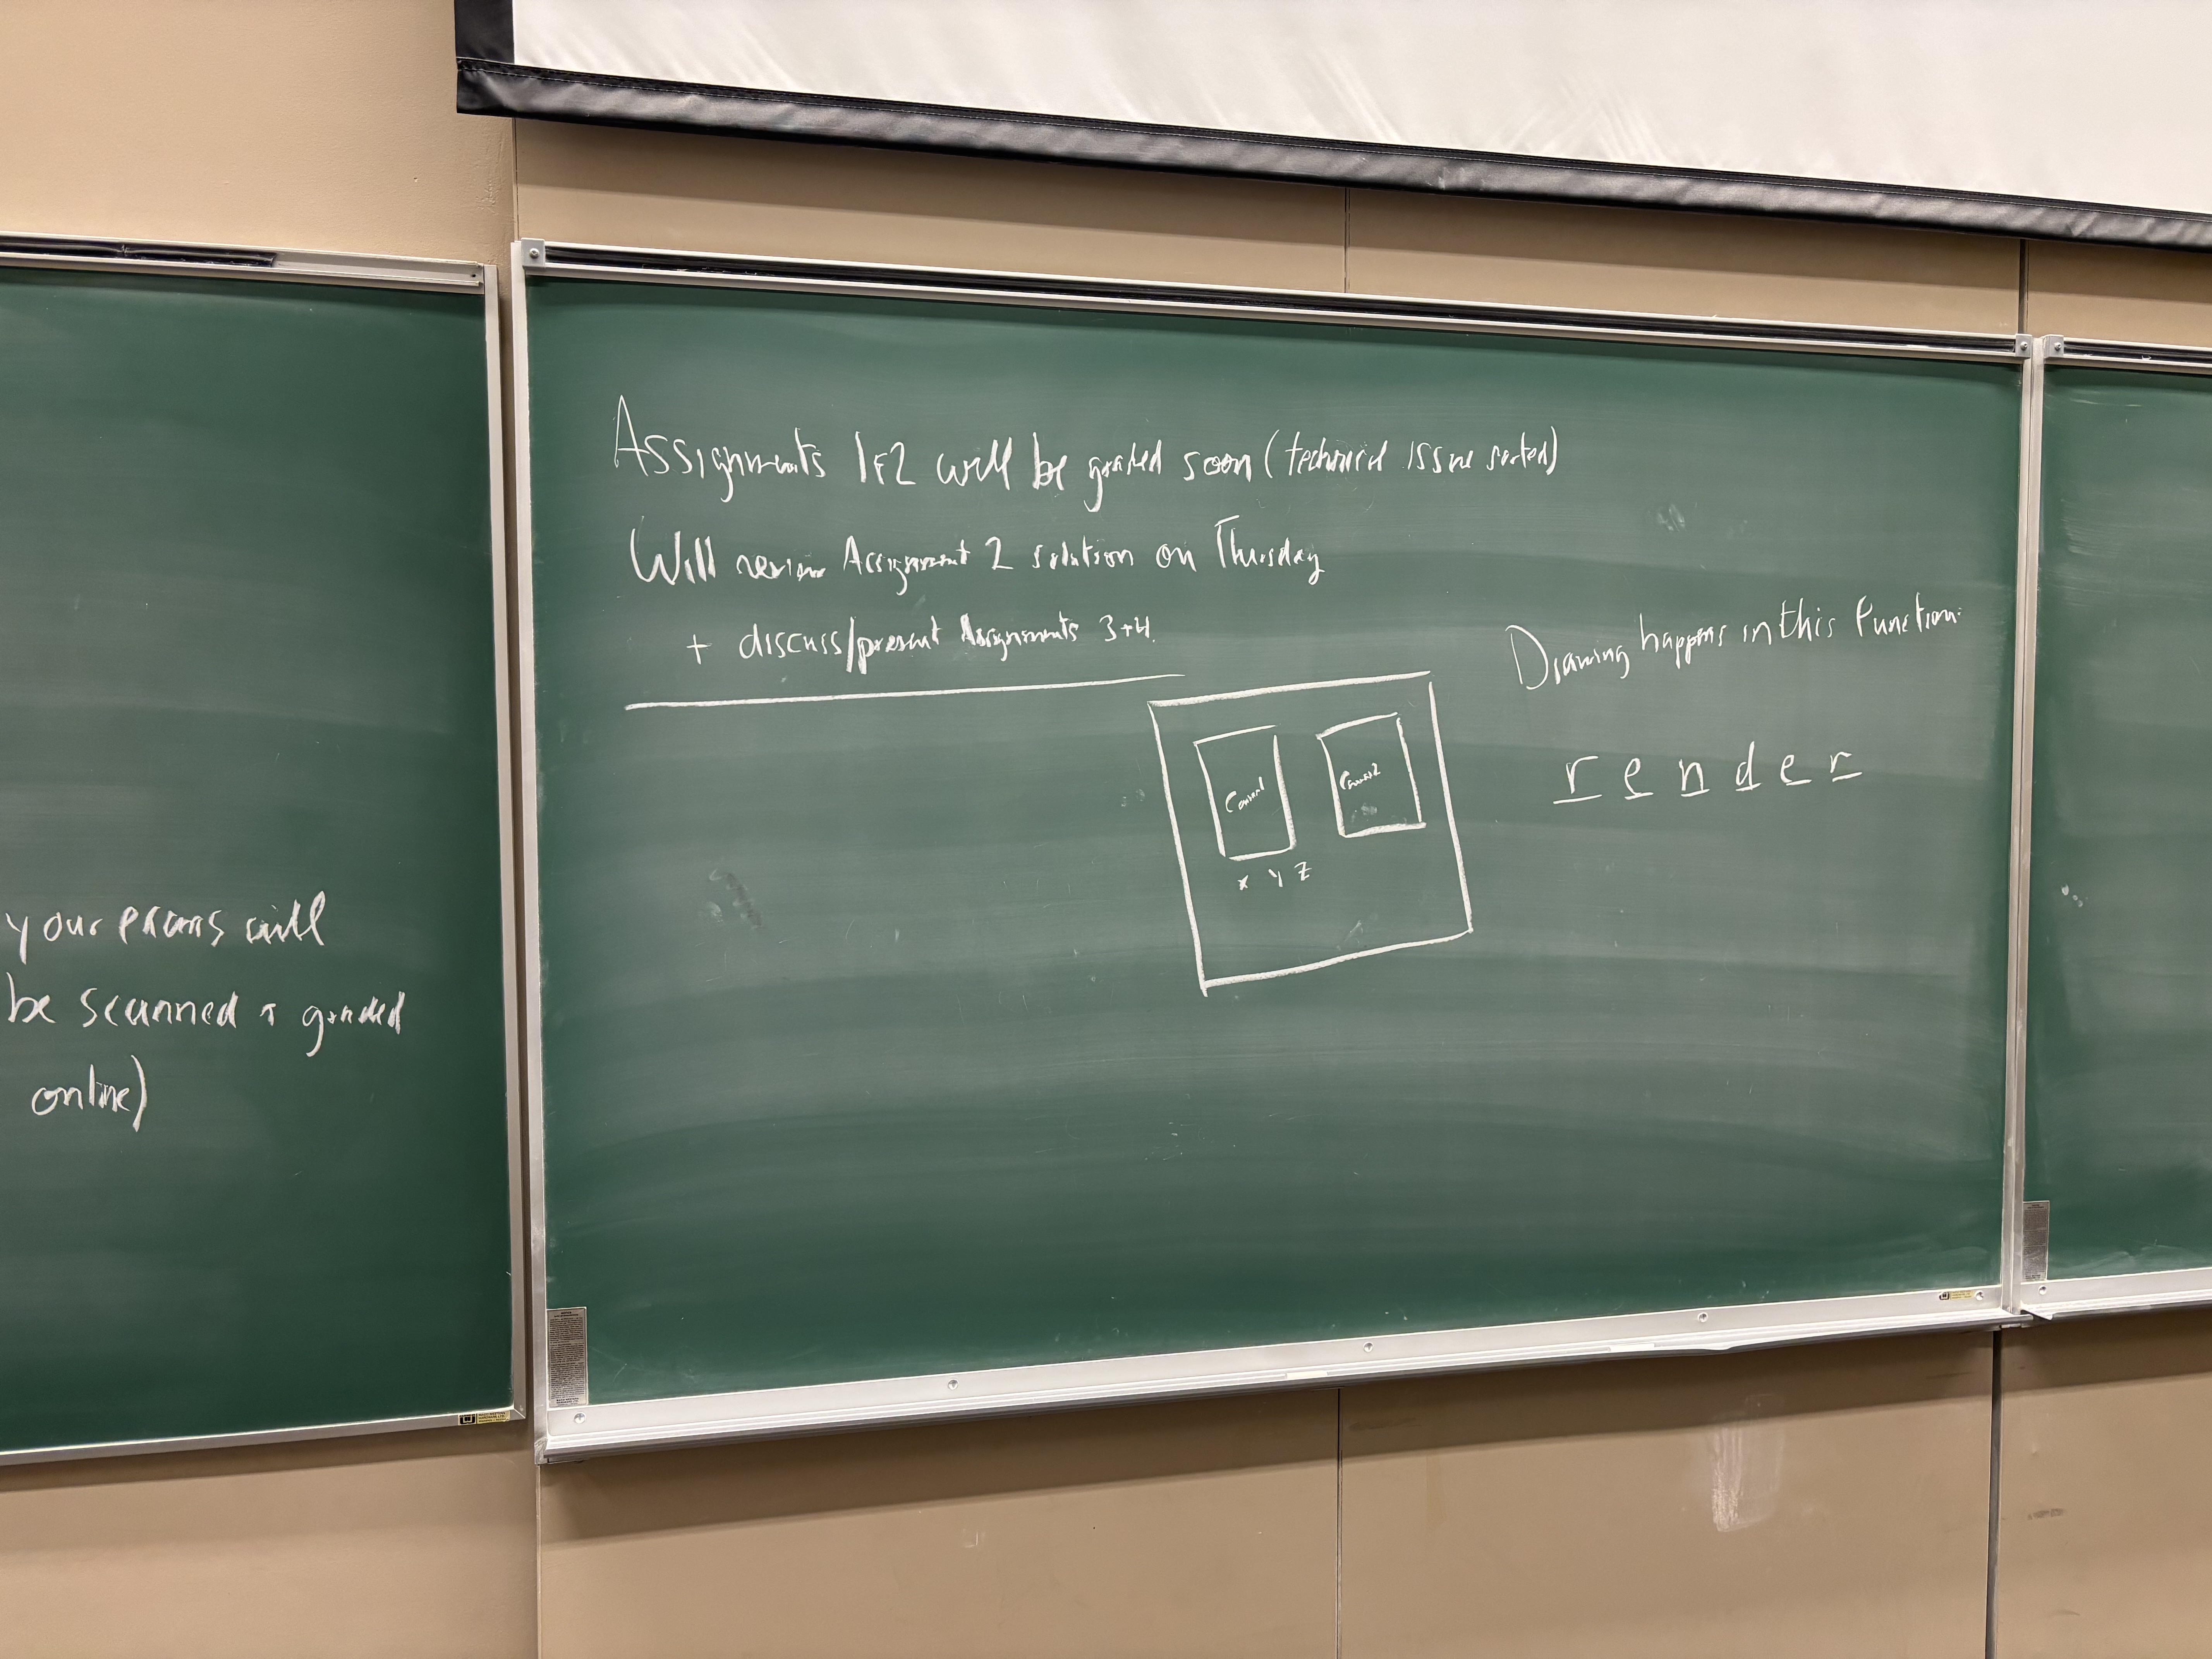 your exams will
be scanned & graded
online)
Assignments 1&2 will be graded soon (technical issue sorted)
Will review Assignment 2 solution on Thursday
+ discuss/present Assignments 3+4.
Drawing happens in this function:
render
Canvas1
Canvas2
x y z